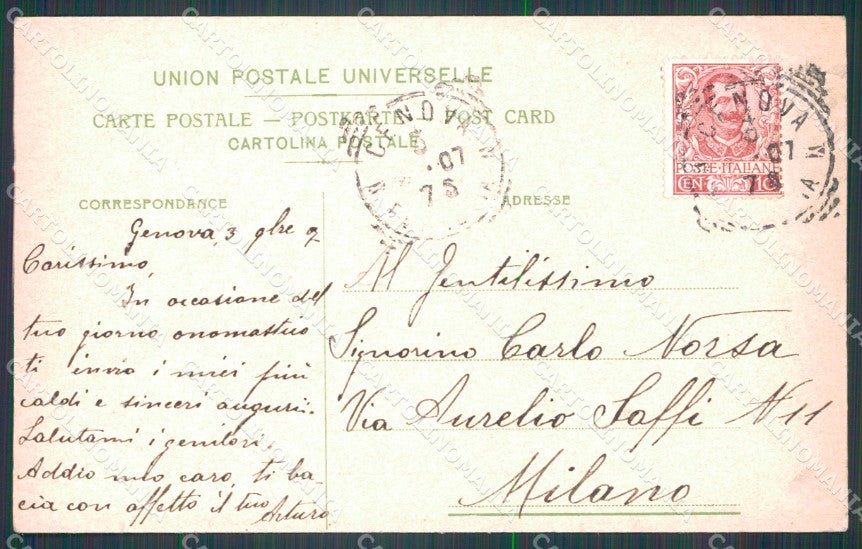 UNION POSTALE UNIVERSELLE
CARTE POSTALE — POSTKARTE — POST CARD
CARTOLINA POSTALE
GENOVA
3
.07
7 S
GENOVA
07
7 S
POSTE ITALIANE
CEN 10
CORRESPONDANCE
Genova, 3 9bre 07
Carissimo,
In occasione del
tuo giorno onomastico
ti invio i miei più
caldi e sinceri augurii.
Salutami i genitori.
Addio mio caro, ti ba-
cia con affetto il tuo Arturo
ADRESSE
Al Gentilissimo
Signorino Carlo Norsa
Via Aurelio Saffi N 11
Milano
CARTOLINOMANIA